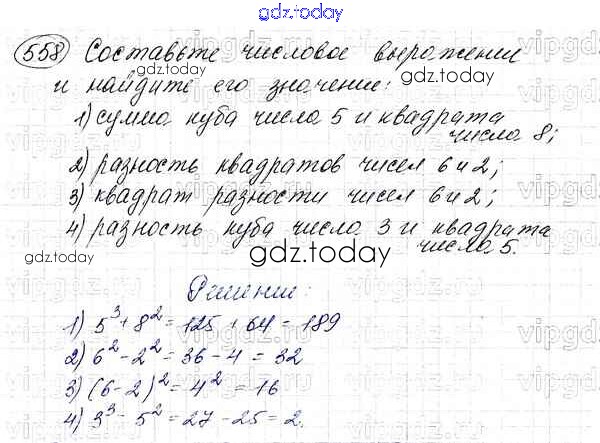 gdz.today
558 Составьте числовое выражени
и найдите его значение:
gdz.today
1) сумма куба числа 5 и квадрата
числа 8;
2) разность квадратов чисел 6 и 2;
3) квадрат разности чисел 6 и 2;
4) разность куба числа 3 и квадрата
числа 5.
gdz.today
gdz.today
Решение:
1) 5³ + 8² = 125 + 64 = 189
2) 6² - 2² = 36 - 4 = 32
3) (6-2)² = 4² = 16
4) 3³ - 5² = 27 - 25 = 2.